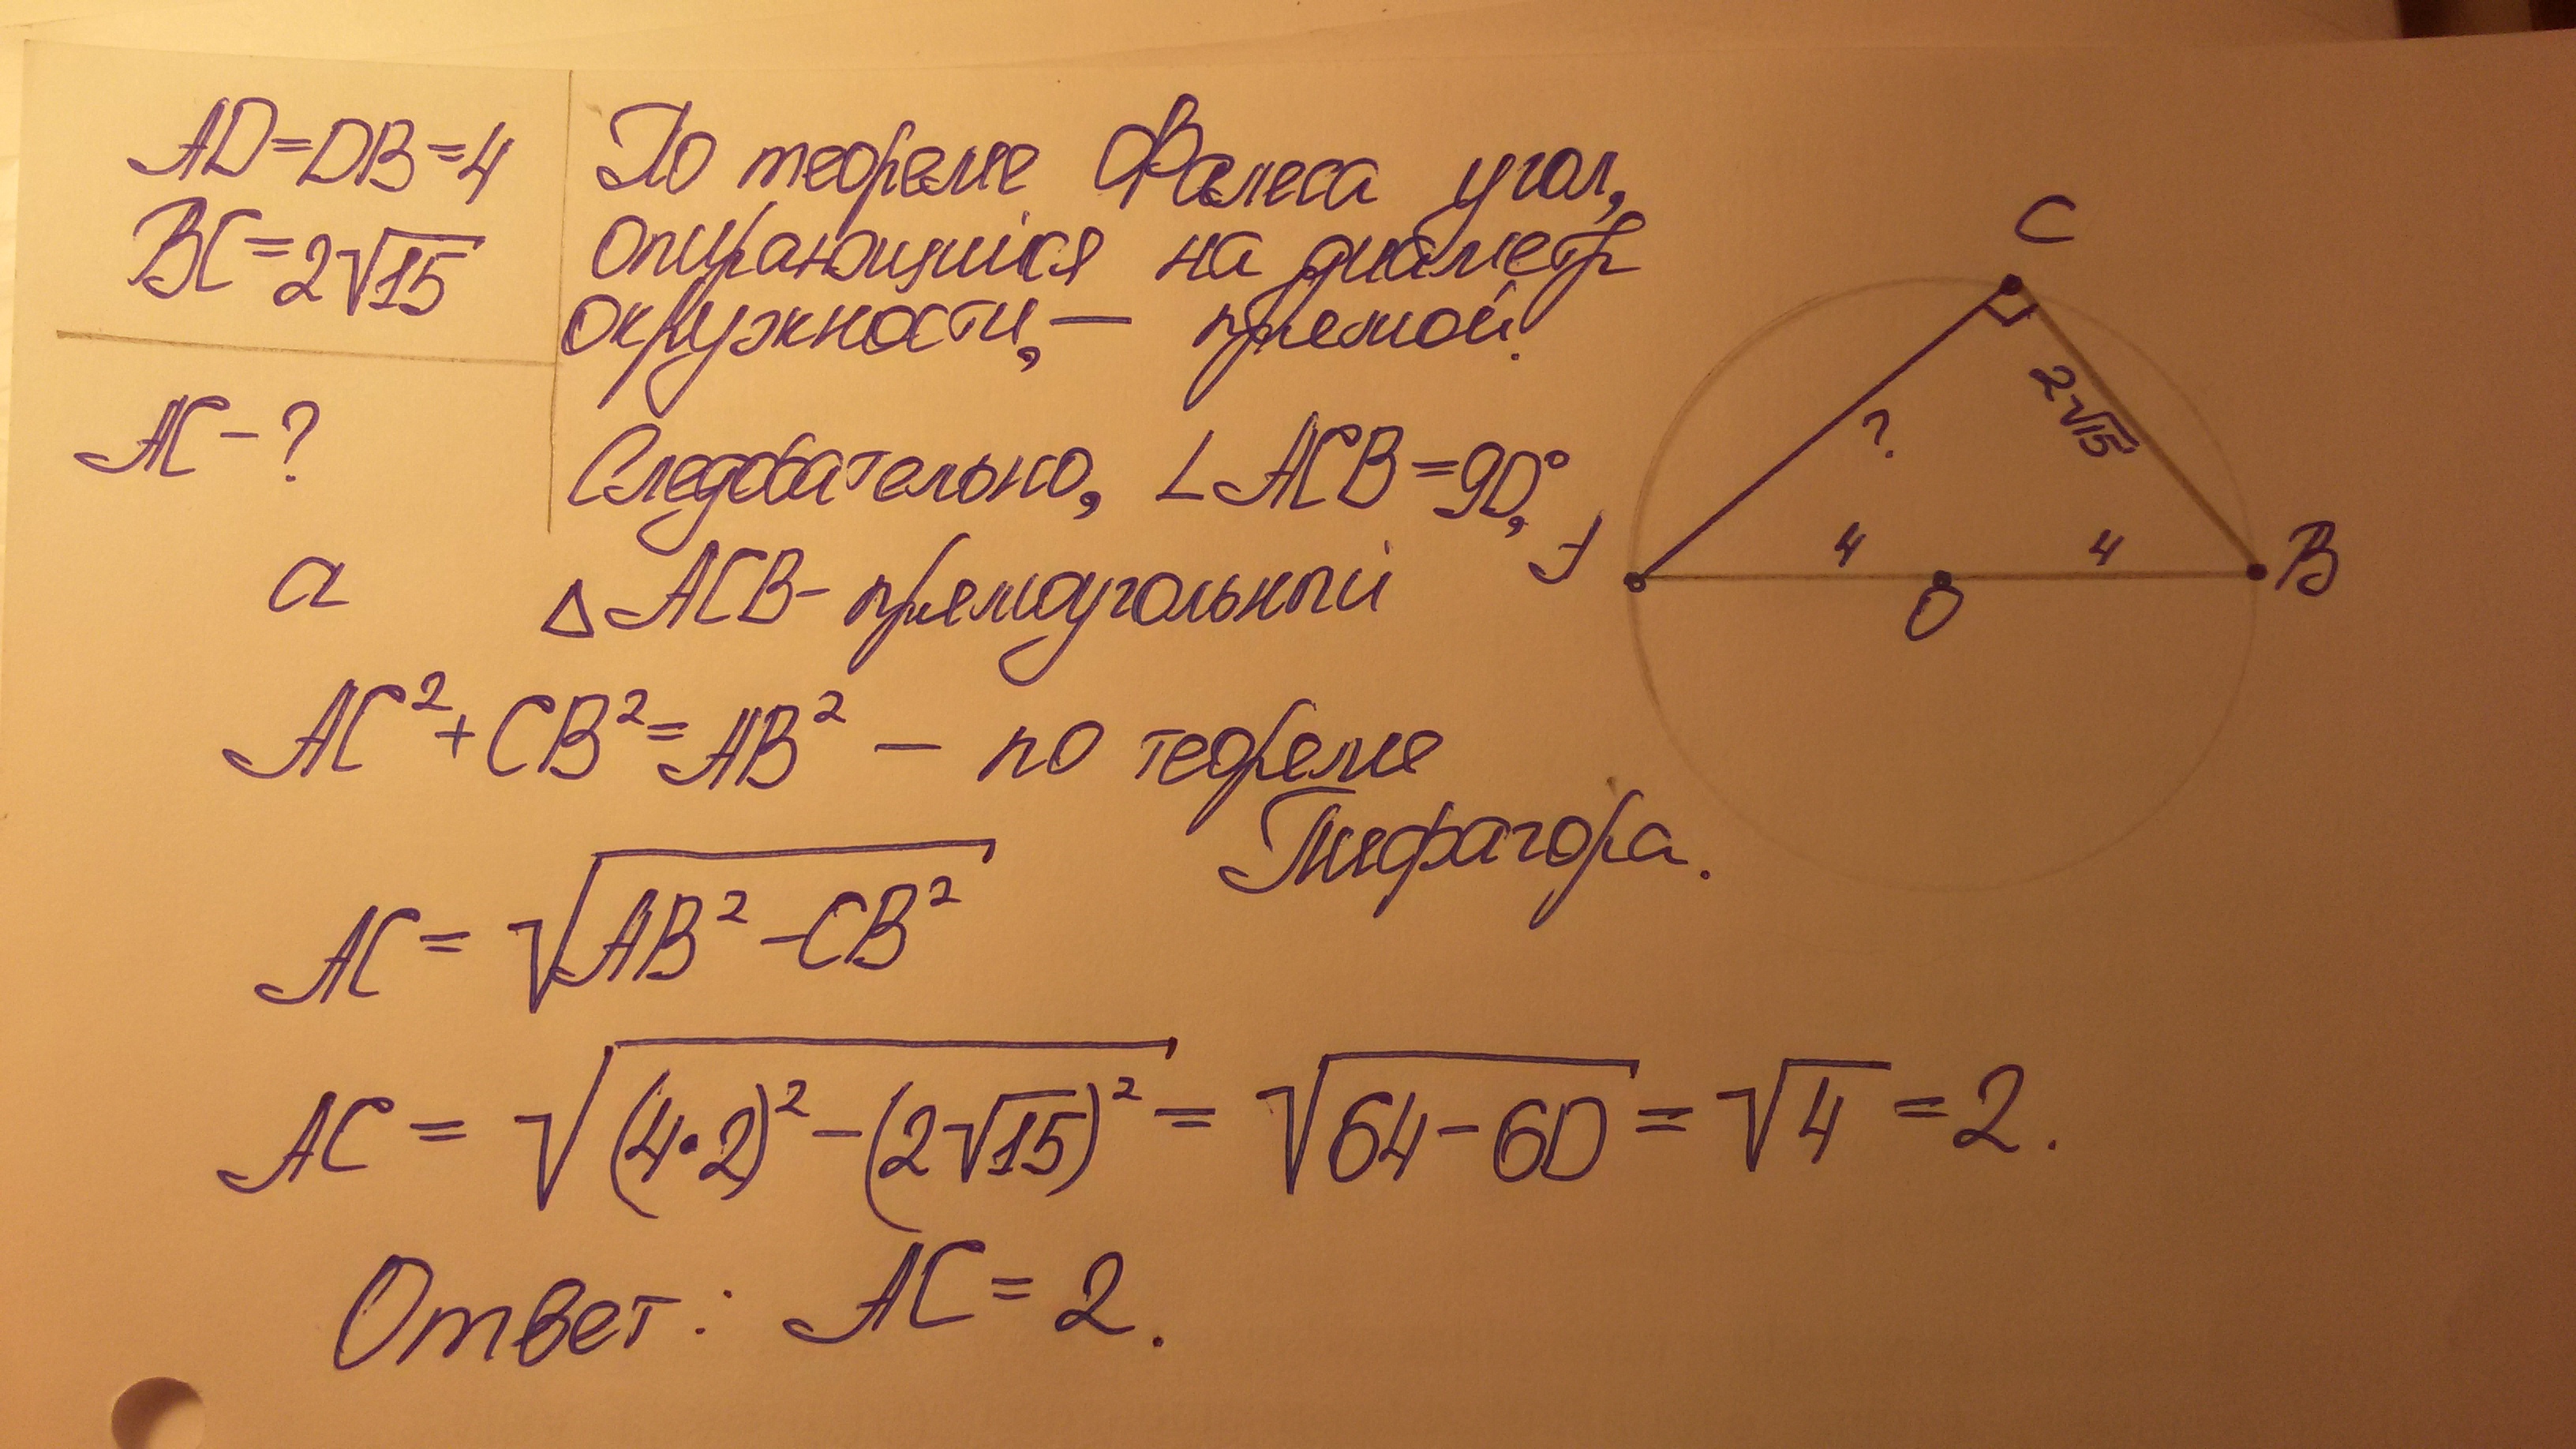 AO=OB=4
BC=2√15
AC-?
По теореме Фалеса угол,
опирающийся на диаметр
окружности, — прямой.
Следовательно, ∠ACB=90°,
а ΔACB- прямоугольный
AC²+CB²=AB² — по теореме
Пифагора.
AC = √(AB²-CB²)
AC = √((4·2)²-(2√15)²) = √(64-60) = √4 = 2.
Ответ: AC=2.
C
2√15
?
A
4
4
B
O